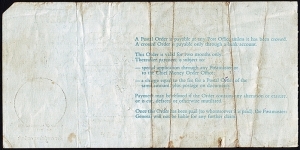 A Postal Order is payable at any Post Office unless it has been crossed.
A crossed Order is payable only through a bank account.
This Order is valid for six months only.
Thereafter payment is subject to:
— special application through any Postmaster
to the Chief Money Order Office;
— a charge equal to the fee for a Postal Order of the
same amount plus postage on documents.
Payment may be refused if the Order contains any alteration or erasure,
or is cut, defaced or otherwise mutilated.
Once the Order has been paid, to whomsoever it is paid, the Postmaster
General will not be liable for any further claim.